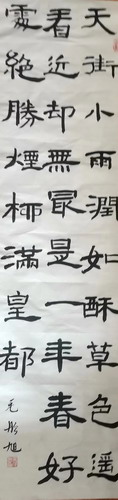 天街小雨潤如酥草色遥
看近却無最是一年春好
處絕勝煙柳滿皇都